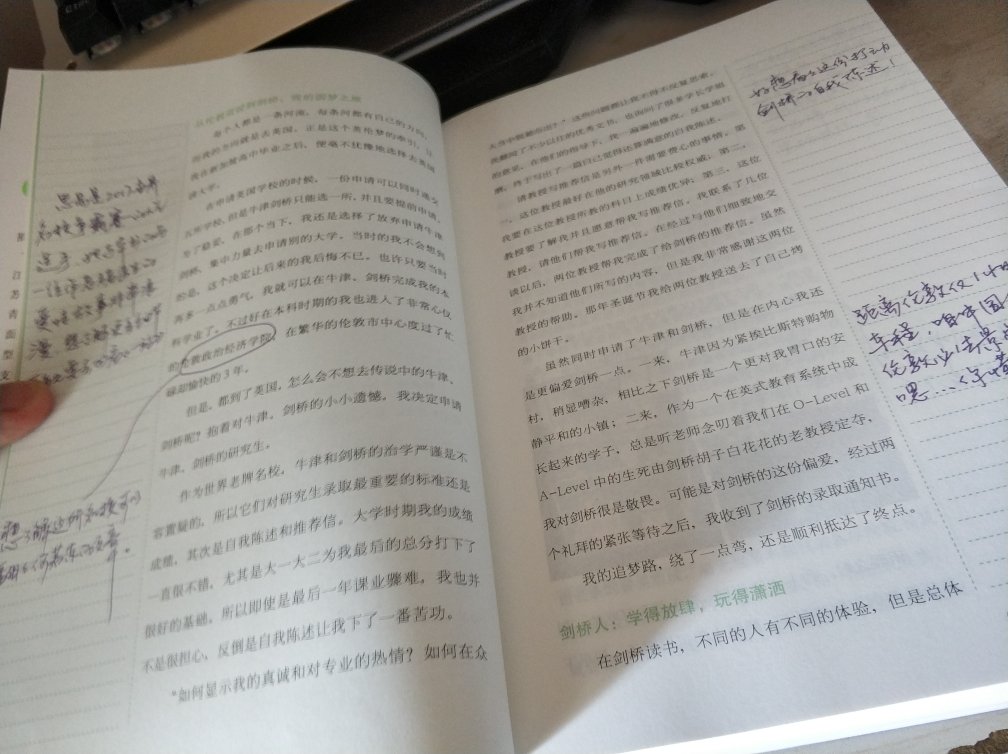 从伦敦政经到剑桥,我的圆梦之旅
每个人都是一条河流,每条河都有自己的方向。
而我的方向就是去英国。正是这个英伦梦的牵引,让
我在新加坡高中毕业之后,便毫不犹豫地选择去英国
读大学。
在申请英国学校的时候,一份申请可以同时递交
五所学校,但是牛津剑桥只能选一所,并且要提前申请。
为了稳妥,在那个当下,我还是选择了放弃申请牛津
剑桥,集中力量去申请别的大学。当时的我不会想到
的是,这个决定让后来的我后悔不已。也许只要当时
再多一点点勇气,我就可以在牛津、剑桥完成我的本
科学业了。不过好在本科时期的我也进入了非常心仪
的伦敦政治经济学院,在繁华的伦敦市中心度过了忙
碌却愉快的3年。
但是,都到了英国,怎么会不想去传说中的牛津、
剑桥呢?抱着对牛津、剑桥的小小遗憾,我决定申请
牛津、剑桥的研究生。
作为世界老牌名校,牛津和剑桥的治学严谨是不
容置疑的,所以它们对研究生录取最重要的标准还是
成绩,其次是自我陈述和推荐信。大学时期我的成绩
一直很不错,尤其是大一大二为我最后的总分打下了
很好的基础,所以即使是最后一年课业骤难,我也并
不是很担心,反倒是自我陈述让我下了一番苦功。
“如何显示我的真诚和对专业的热情?如何在众
人当中脱颖而出?”这些问题都让我不得不反复思索。
我翻阅了不少以往的优秀文书,也询问了很多学长学姐
的意见,在他们的指导下,我一遍遍地修改、反复地打
磨,终于写出了一篇自己觉得还算满意的自我陈述。
请教授写推荐信是另外一件需要费心的事情。第
一,这位教授最好在他的研究领域比较权威;第二,
我要在这位教授所教的科目上成绩优异;第三,这位
教授要了解我并且愿意帮我写推荐信。我联系了几位
教授,请他们帮我写推荐信。在经过与他们细致地交
谈以后,两位教授帮我完成了给剑桥的推荐信。虽然
我并不知道他们所写的内容,但是我非常感谢这两位
教授的帮助。那年圣诞节我给两位教授送去了自己烤
的小饼干。
虽然同时申请了牛津和剑桥,但是在内心我还
是更偏爱剑桥一点。一来,牛津因为紧挨比斯特购物
村,稍显嘈杂,相比之下剑桥是一个更对我胃口的安
静平和的小镇;二来,作为一个在英式教育系统中成
长起来的学子,总是听老师念叨着我们在 O-Level 和
A-Level 中的生死由剑桥胡子白花花的老教授定夺,
我对剑桥很是敬畏。可能是对剑桥的这份偏爱,经过两
个礼拜的紧张等待之后,我收到了剑桥的录取通知书。
我的追梦路,绕了一点弯,还是顺利抵达了终点。
剑桥人:学得放肆,玩得潇洒
在剑桥读书,不同的人有不同的体验,但是总体
好想看看这份打动
剑桥的自我陈述!
距离伦敦仅1小时
车程,咱中国
伦敦必去景
嗯…